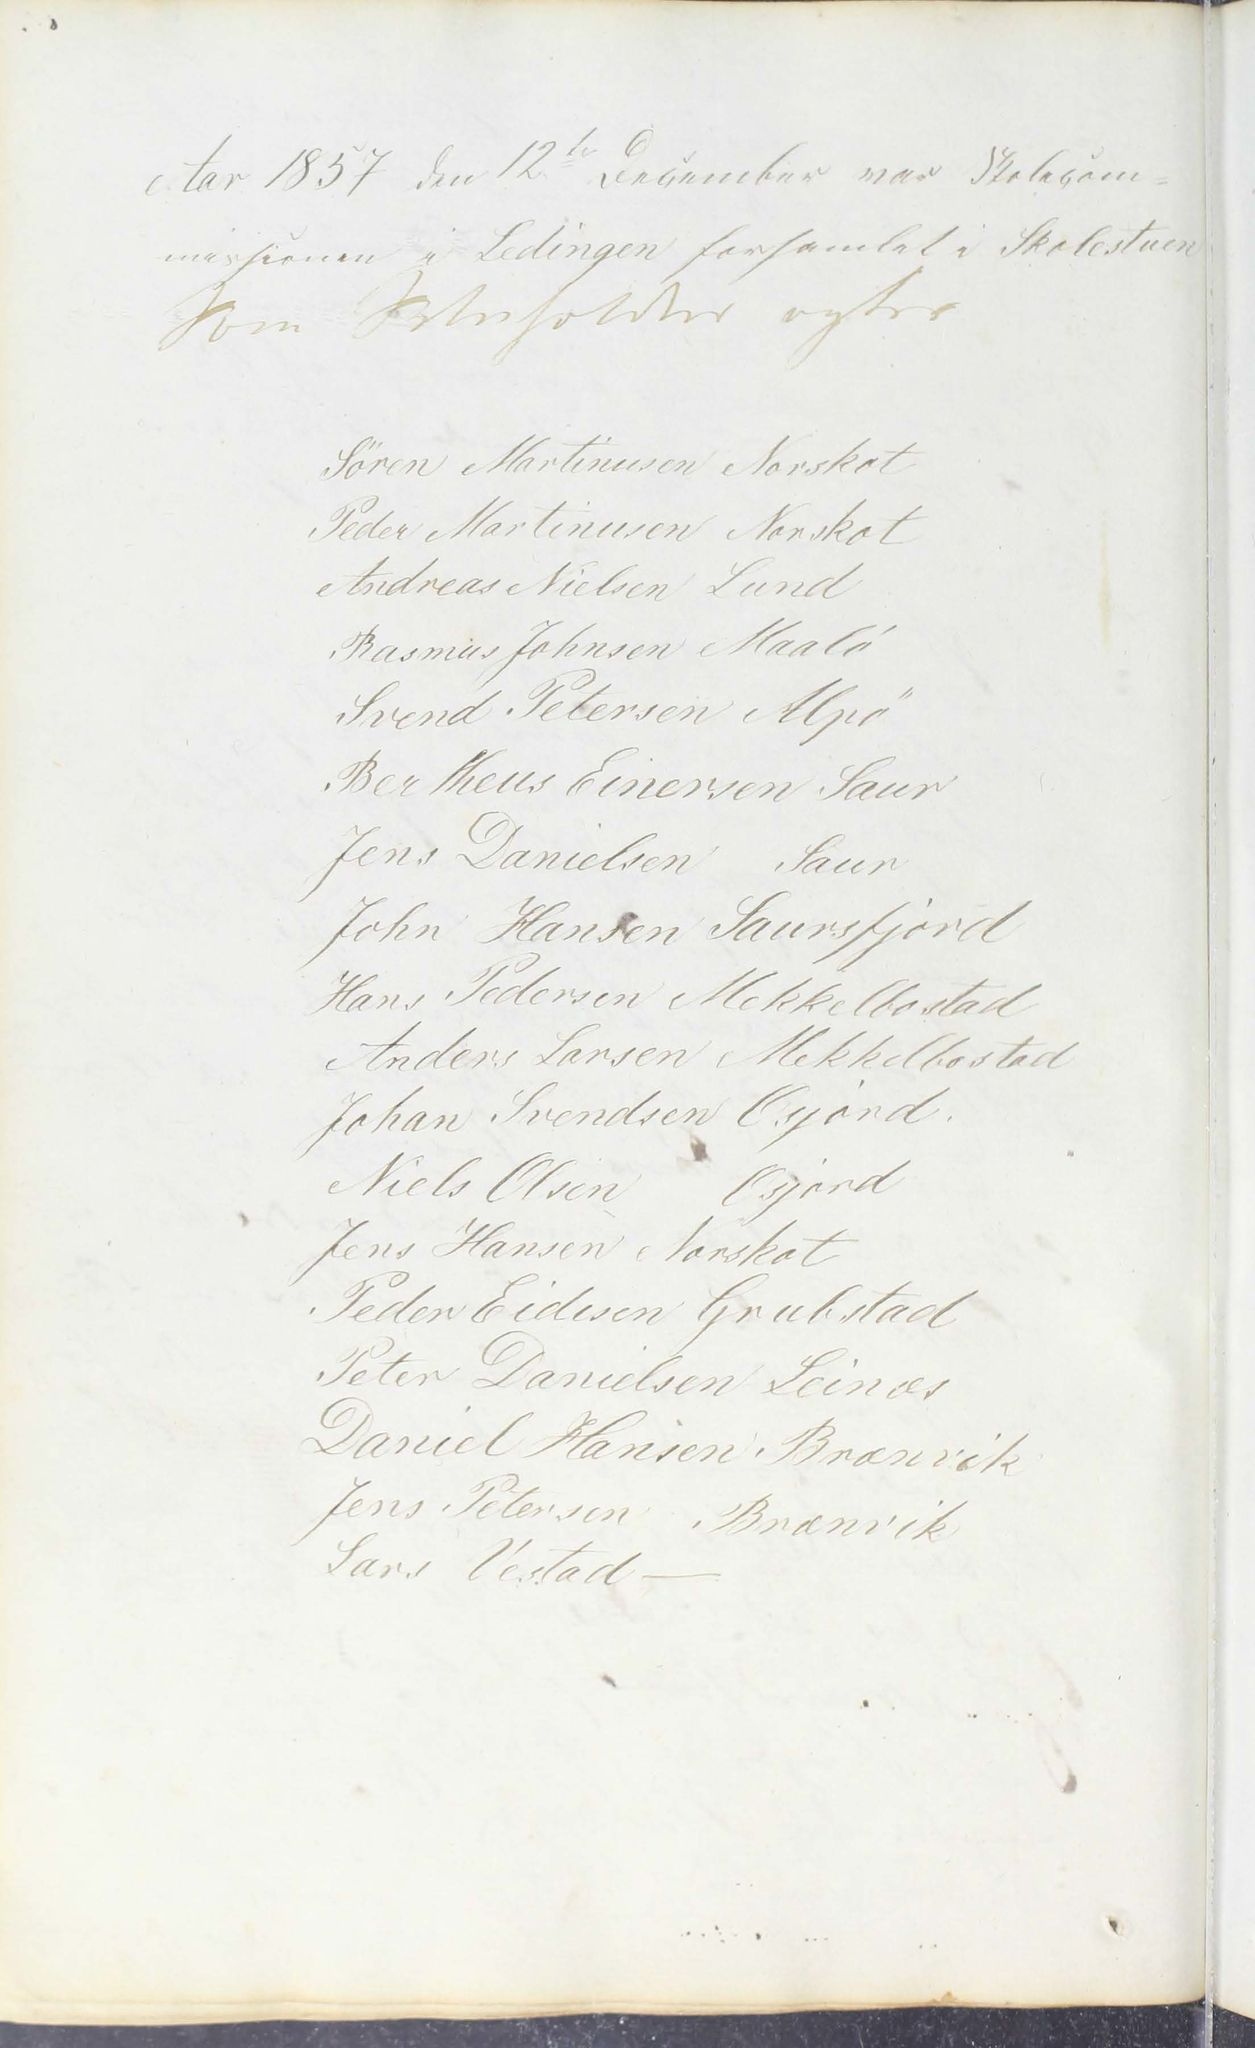 Aar 1857 den 12te December var Skolecom=
missionen i Ledingen forsamlet i Skolestuen
Som
Sören Martinusen Norskot
Peder Martinusen Norskot
Andreas Nielsen Lund
Rasmus Johnsen Maalö
Svend Petersen Alpö
Bertheus Einersen Saur
Jens Danielsen Saur
John Hansen Saursfjord
Hans Pedersen Mekkelbostad
Anders Larsen Mekkelbostad
Johan Svendsen Osjord.
Niels Olsen Osjord
Jens Hansen Norskot
Peder Eidisen Grubstad
Peter Danielsen Leinæs
Daniel Hansen Brænvik
Jens Petersen Brænvik
Lars Vestad —